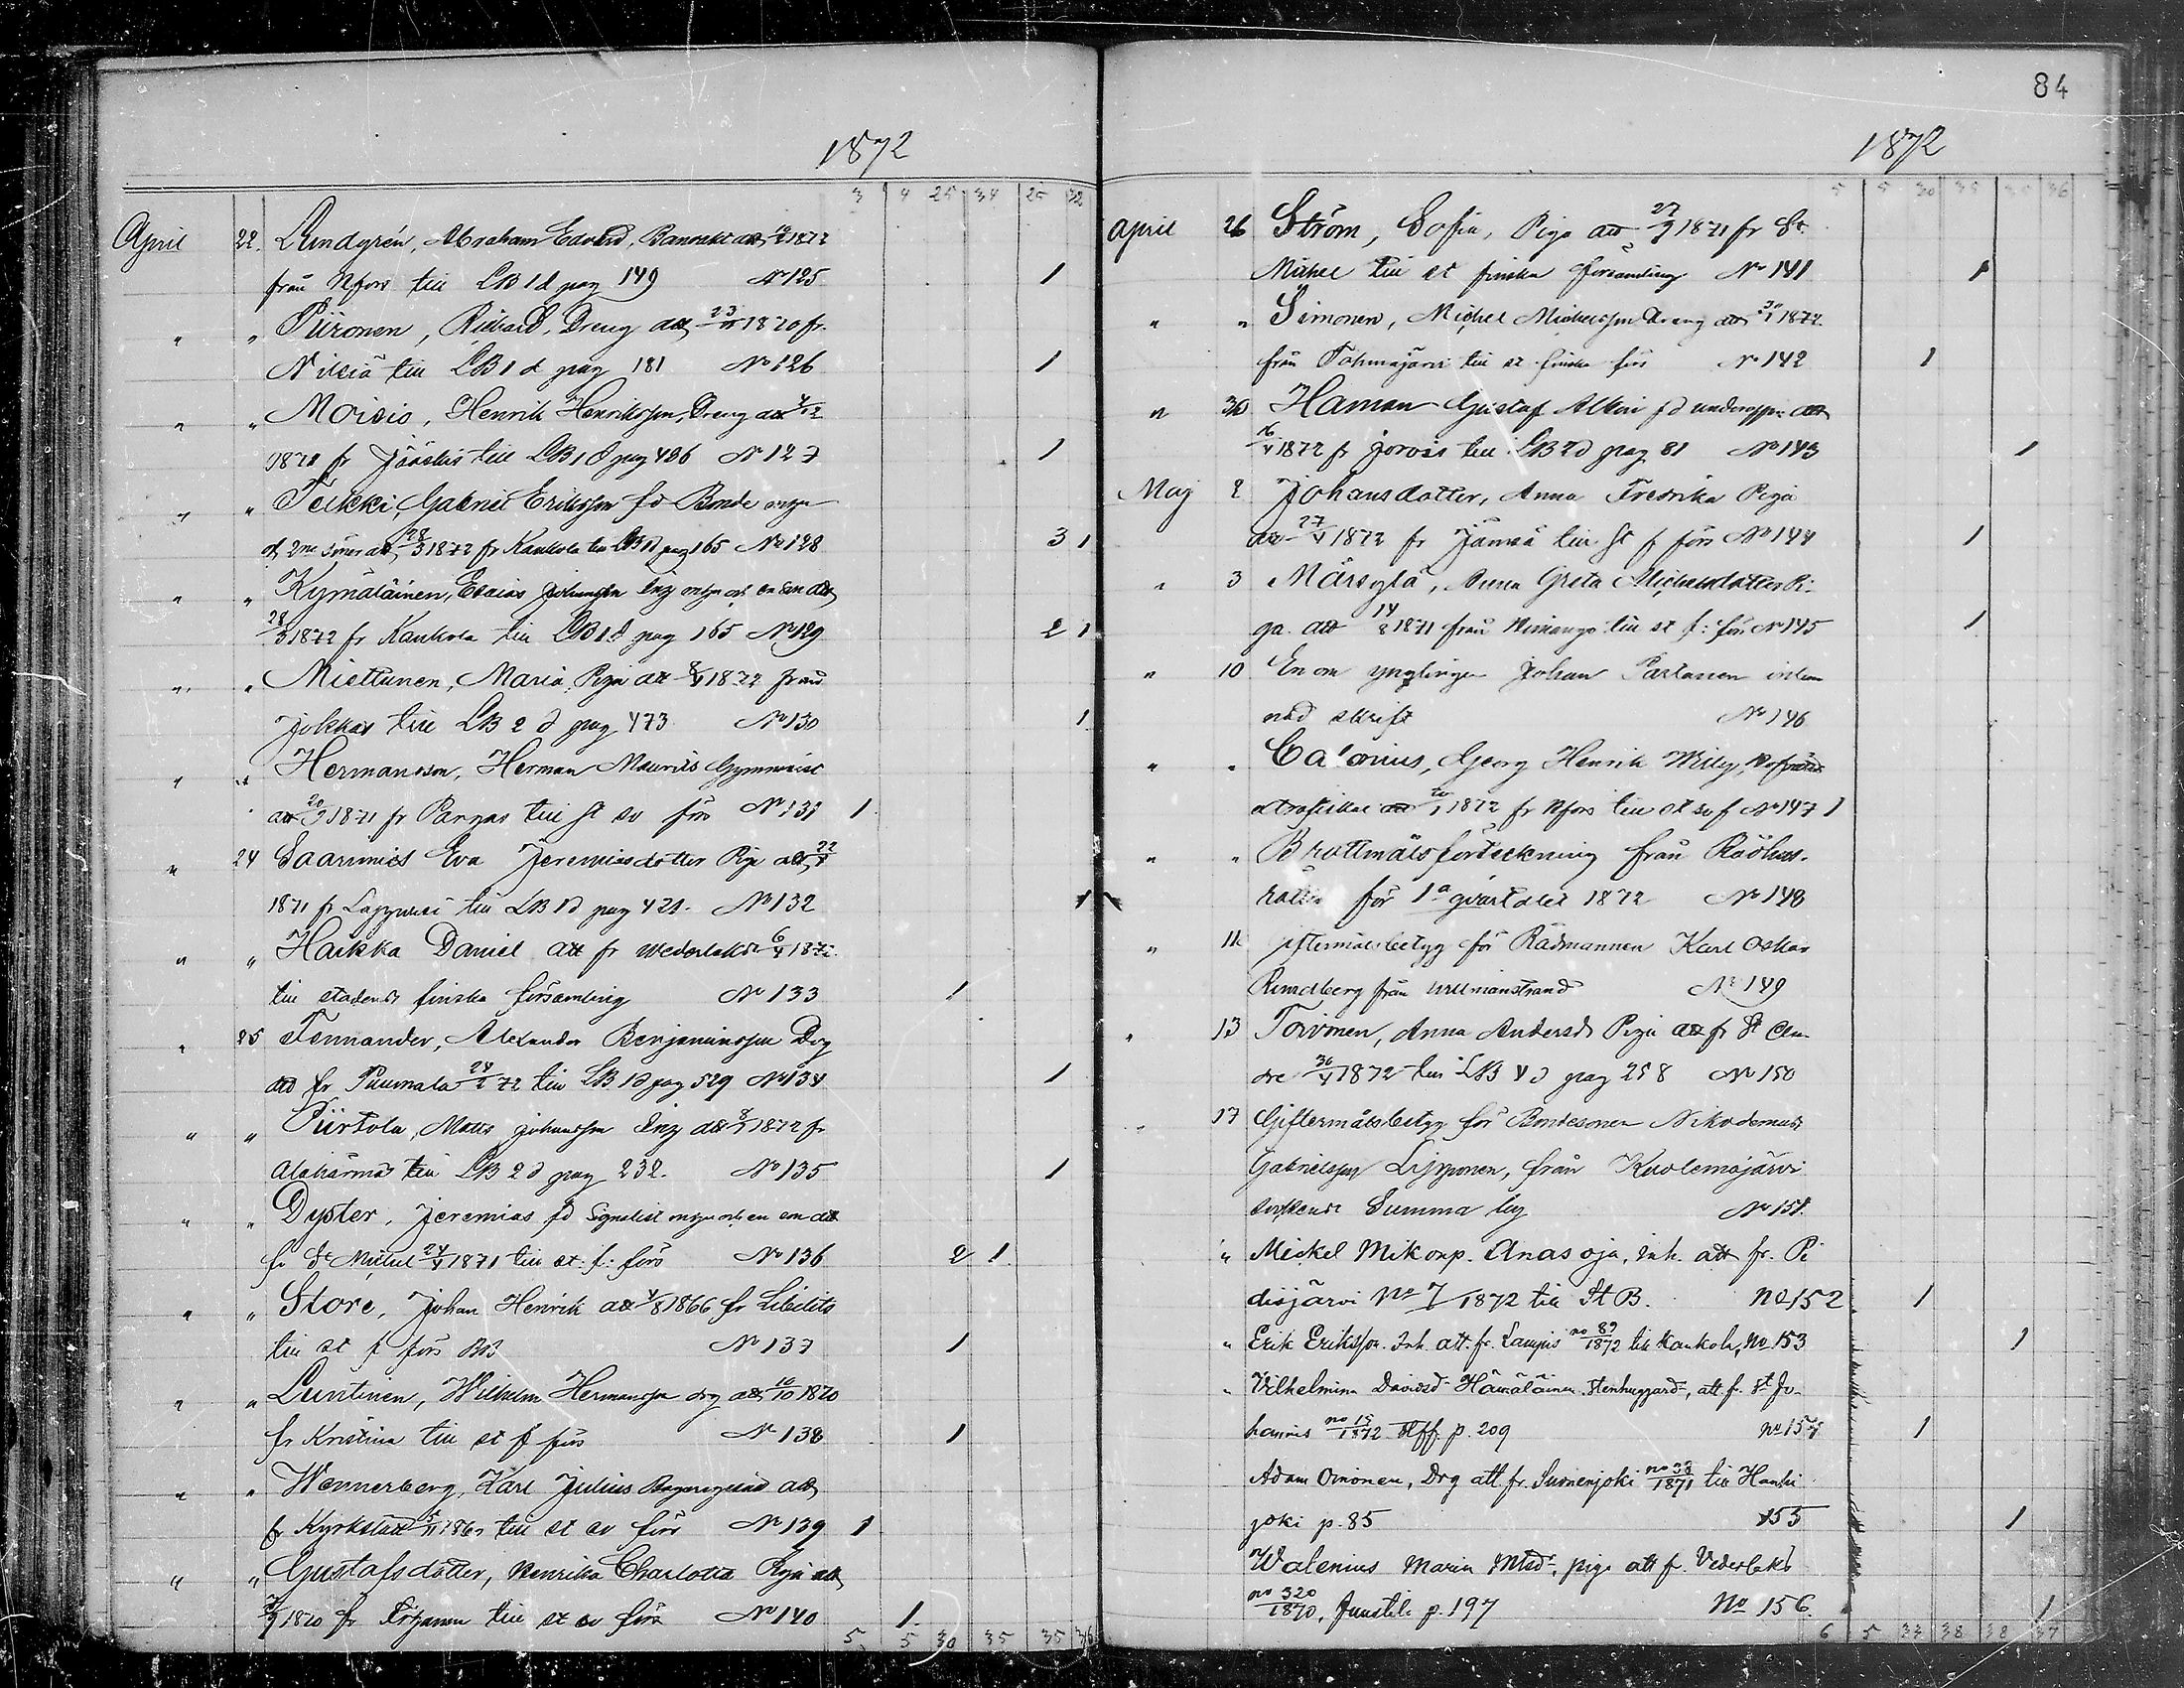 1872
3 4 25 34 25 32
April 22. Lundgrén, Abraham Edvard, att 1872
från Nfors till LB 1 d pag 149 No 125 1
" " Piironen, Rickard, Dreng att 23/11 1870 fr.
Nilsiä till LB 1 d pag 181 No 126 1
" " Moisio, Henrik Henriksson, Dreng att 4/12
1871 fr Jääskis till LB 1 d pag 486 No 127 1
" " Teikki, Gabriel Eriksson fd Bonde
2ne söner att 28/3 1872 fr Kaukola till LB 1 d pag 165 No 128 3 1
" " Kymäläinen, Esaias Johansson Inz att
28/3 1872 fr Kaukola till LB 1 d pag 165 No 129 2 1
" " Miettunen, Maria, Piga att 8/4 1872 från
Jokkas till LB 2 d pag 473 No 130 1
" " Hermansson, Herman Mauritz Gymnasist
att 20/9 1871 fr Pargas till st sv förs No 131 1
" 24 Saarimies Eva Jeremiasdotter Piga att 22
1871 fr Lappvesi till LB 1 d pag 421. No 132 1
" " Haikka Daniel att fr Wederlaks 6/4 1872
till stadens finska församling No 133 1
" 25 Tennander, Alexander Benjaminsson Drg
att fr Puumala 24/2 72 till LB 1 d pag 529 No 134 1
" " Piirtola, Matts Johansson Inz att 8 1872 fr
Alahärmä till LB 2 d pag 232. No 135 1
" " Dyster, Jeremias fd Signalist och en son att
fr St Michel 24/4 1871 till st. f: förs No 136 2 1
" " Store, Johan Henrik att 4/8 1866 fr Libelits
till st f förs No 137 1
" " Luntinen, Wilhelm Hermansson drg att 10/10 1870
fr Kristina till st f förs No 138 1
" " Wennerberg, Karl Julius att
fr Kyrkslätt till st sv förs No 139 1
" " Gustafsdotter, Henrika Charlotta Piga att
1870 fr till st sv förs No 140 1.
5 5 30 35 35 36
84
1872
5 5 30 35 35 36
April 26 Ström, Sofia, Piga att 27/9 1871 fr St.
Michel till st finska församling No 141 1
" " Simonen, Michel Michelsson Dreng att 30 1872.
från Tohmajärvi till st finska förs No 142 1
" 30 Haman Gustaf Albin fd underoff: att
16/4 1872 fr Jorois till LB 2 d pag 81 No 143 1
Maj 2 Johansdotter, Anna Fredrika Piga
att 27/4 1872 fr Jämsä till St f förs No 144 1
" 3 Märsylä, Anna Greta Michelsdotter Pi-
ga. att 14/8 1871 från Himango till st f: förs No 145 1
" 10 En om ynglingen Johan Partanen inlem
nad skrift No 146
" " Calonius, Georg Henrik Willy,
att 1872 fr Nfors till st sv f No 147 1
" " Brottmålsförteckning från Rådhus-
rätten för 1a qvartalet 1872 No 148
" 11 Giftermålsbetyg för Rådmannen Karl Oskar
Rundberg från Willmanstrand No 149
" 13 Toivonen, Anna Andersd. Piga att fr St
dre 30/4 1872 till LB 4 d pag 258 No 150
" 17 Giftermålsbetyg för Bondesonen Nikodemus
Gabrielsson Lipponen, från Kuolemajärvi
sockens Summa by No 151.
" Mickel Mikonp. Anasoja, Inh. att fr. Pi
disjärvi No 7/1872 till St B. No 152 1
" Erik Eriksson. Inh. att. fr. Lampis no 89/1872 till Kaukola, No 153 1
" Vilhelmina Davidsd. Hämäläinen Stenhuggard., att f. St Jo-
hannis no 15/1872 Stff. p. 209 No 154 1
Adam Oinonen, Drg att. fr. Suonenjoki no 33/1871 till Hanki
joki p. 85 155 1
Walenius Maria Mtsd. piga att f. Vederlaks
no 320/1870, Juustila p. 197 No 156. 1
6 5 33 38 38 37